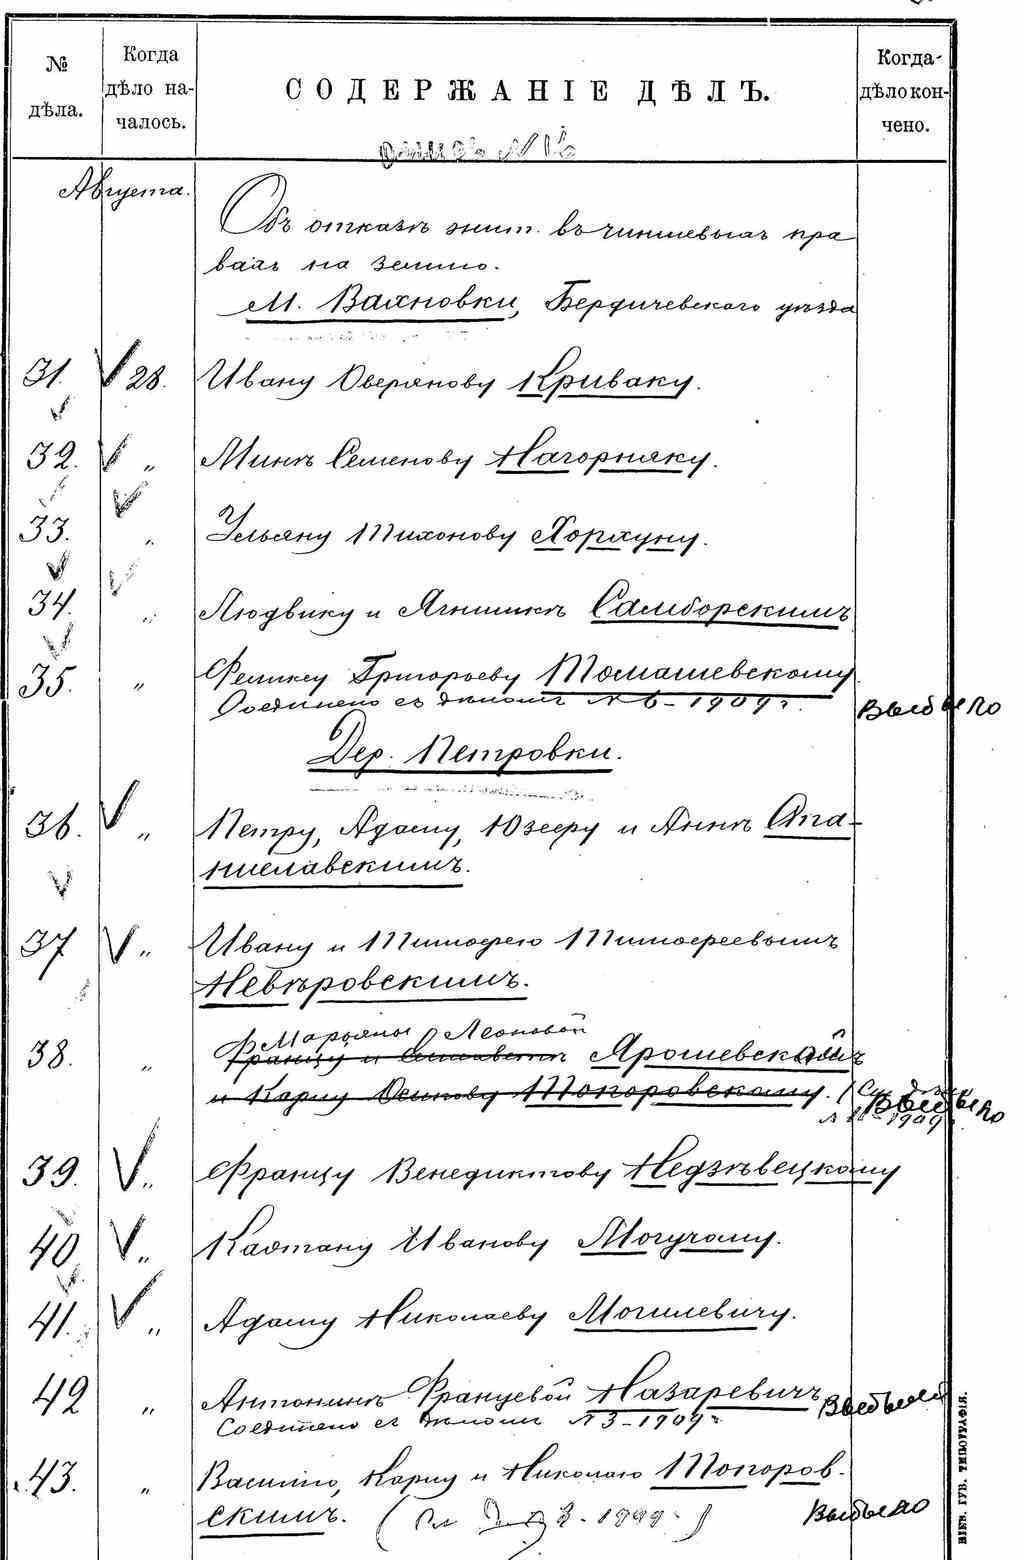 № дѣла.
Когда дѣло началось.
СОДЕРЖАНІЕ ДѢЛЪ.
Когда дѣло кончено.
Августа.
Объ отказѣ жит. въ чиншевыхъ пра
вахъ на землю.
М. Вахновки, Бердичевскаго уѣзда
31. 28. Ивану Оверянову Криваку.
32. „ Минѣ Семенову Нагорняку.
33. „ Ульяну Тихонову Хорхуну.
34. „ Людвику и Ягнишкѣ Самборскимъ
35. „ Феликсу Григорьеву Томашевскому
Соединено съ дѣломъ № 6 - 1909 г.
Выбыло
Дер. Петровки.
36. „ Петру, Адаму, Юзефу и Аннѣ Ста-
ниславскимъ.
37 „ Ивану и Тимофею Тимофеевымъ
Невѣровскимъ.
Марьяны Леоновой
38. „ Францу и Ярошевской
и Карпу Осипову Топоровскому.
Выбыло
1909
39. „ Францу Венедиктову Недзвѣцкому
40 „ Каэтану Иванову Могучому.
41. „ Адаму Николаеву Могилевичу.
42 „ Антонинѣ Францевой Назаревичъ
Соединено съ дѣломъ № 3 - 1909 г.
Выбылъ
43. „ Василію, Карпу и Николаю Топоров-
скимъ.
Выбыло
КІЕВ. ГУБ. ТИПОГРАФІЯ.